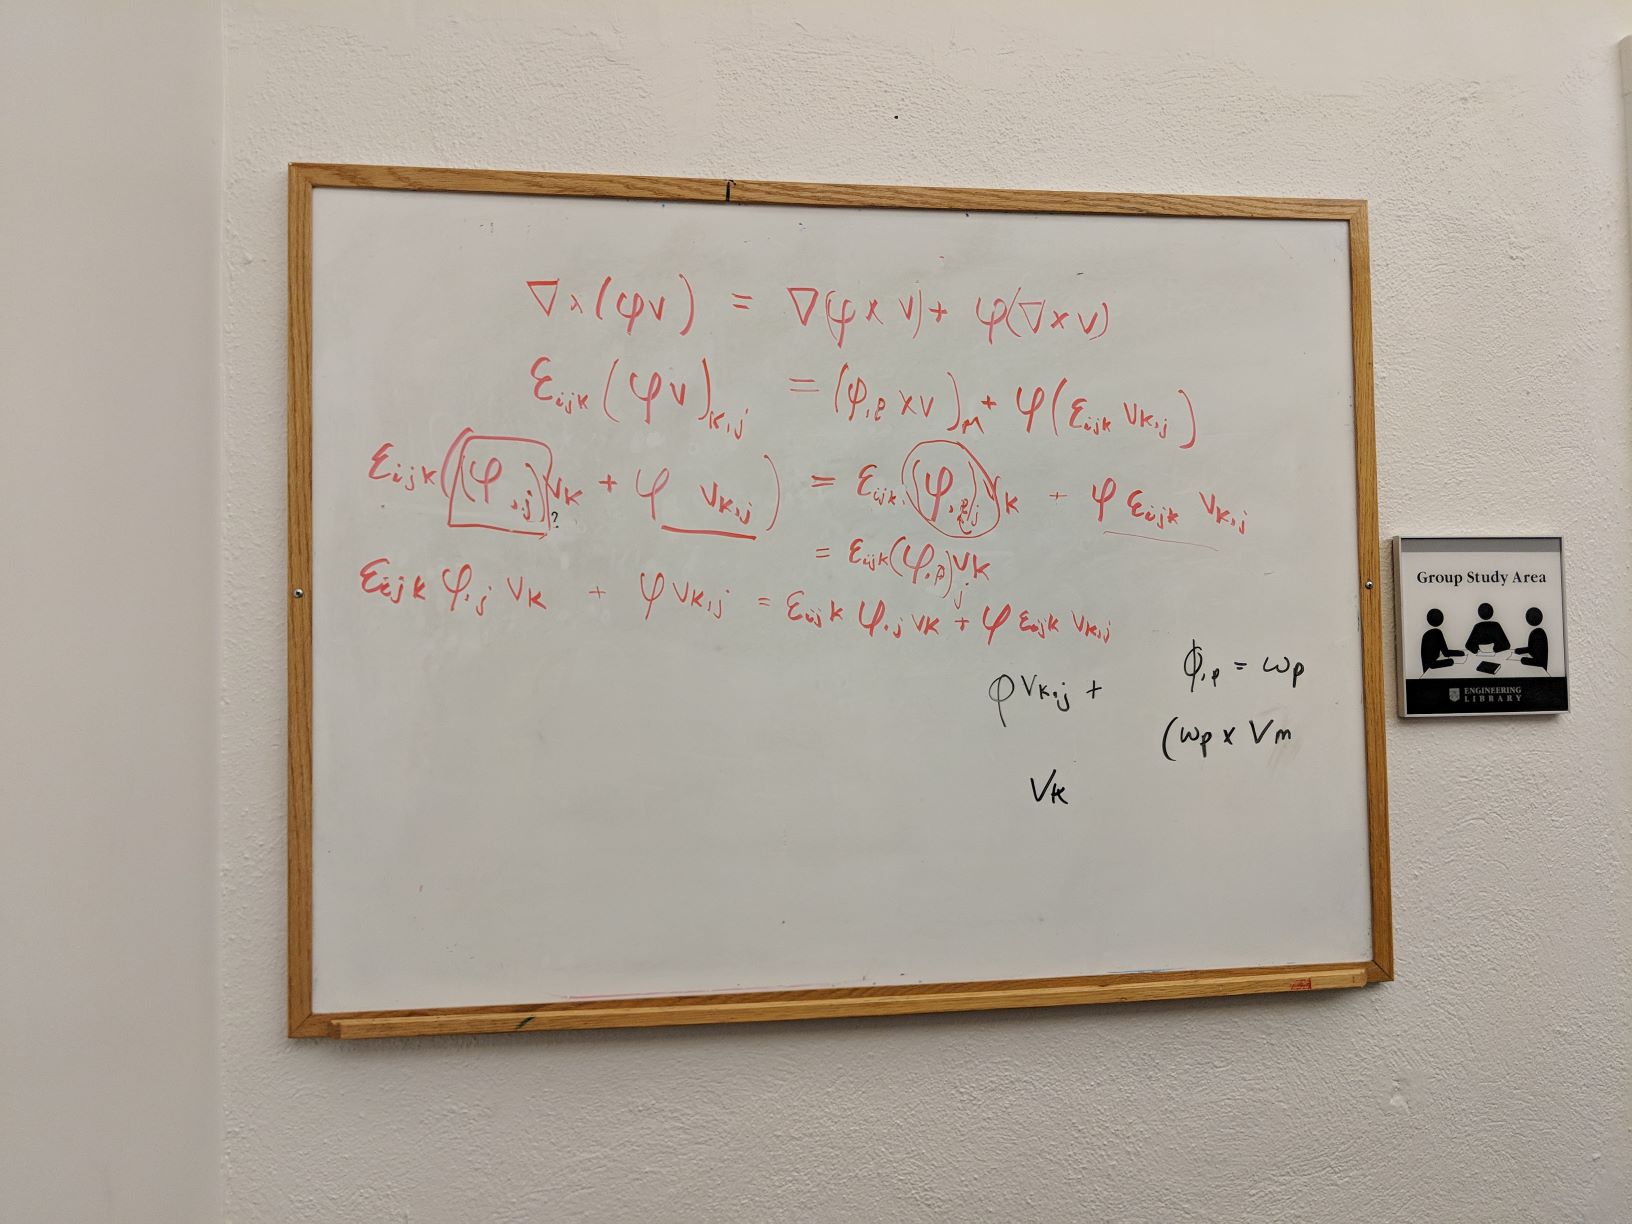 ∇ x (φv) = ∇(φ x v) + φ(∇ x v)
Ɛijk (φv)k,j = (φ,p x v)m + φ(Ɛijk vk,j)
Ɛijk((φ,j)vk + φ vk,j) = Ɛijk(φ,p)j vk + φ Ɛijk vk,j
?
= Ɛijk(φ,p)j vk
Ɛijk φ,j vk + φ vk,j = Ɛijk φ,j vk + φ Ɛijk vk,j
φ vk,j +
ϕ,p = ωp
(ωp x Vm
Vk
Group Study Area
ENGINEERING
LIBRARY